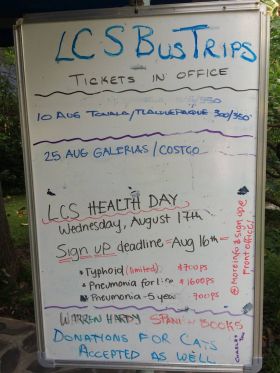 LCS BUS TRIPS
TICKETS IN OFFICE
10 AUG TONALA/TLAQUEPAQUE 300/350
25 AUG GALERIAS/COSTCO
LCS HEALTH DAY
Wednesday, August 17th
Sign up deadline = Aug 16th
• Typhoid (limited) $700ps
• Pneumonia for $1600ps
Pneumonia - 5 year 700ps
more info & sign up @
Front office!
WARREN HARDY SPANISH BOOKS
DONATIONS FOR CATS
ACCEPTED AS WELL